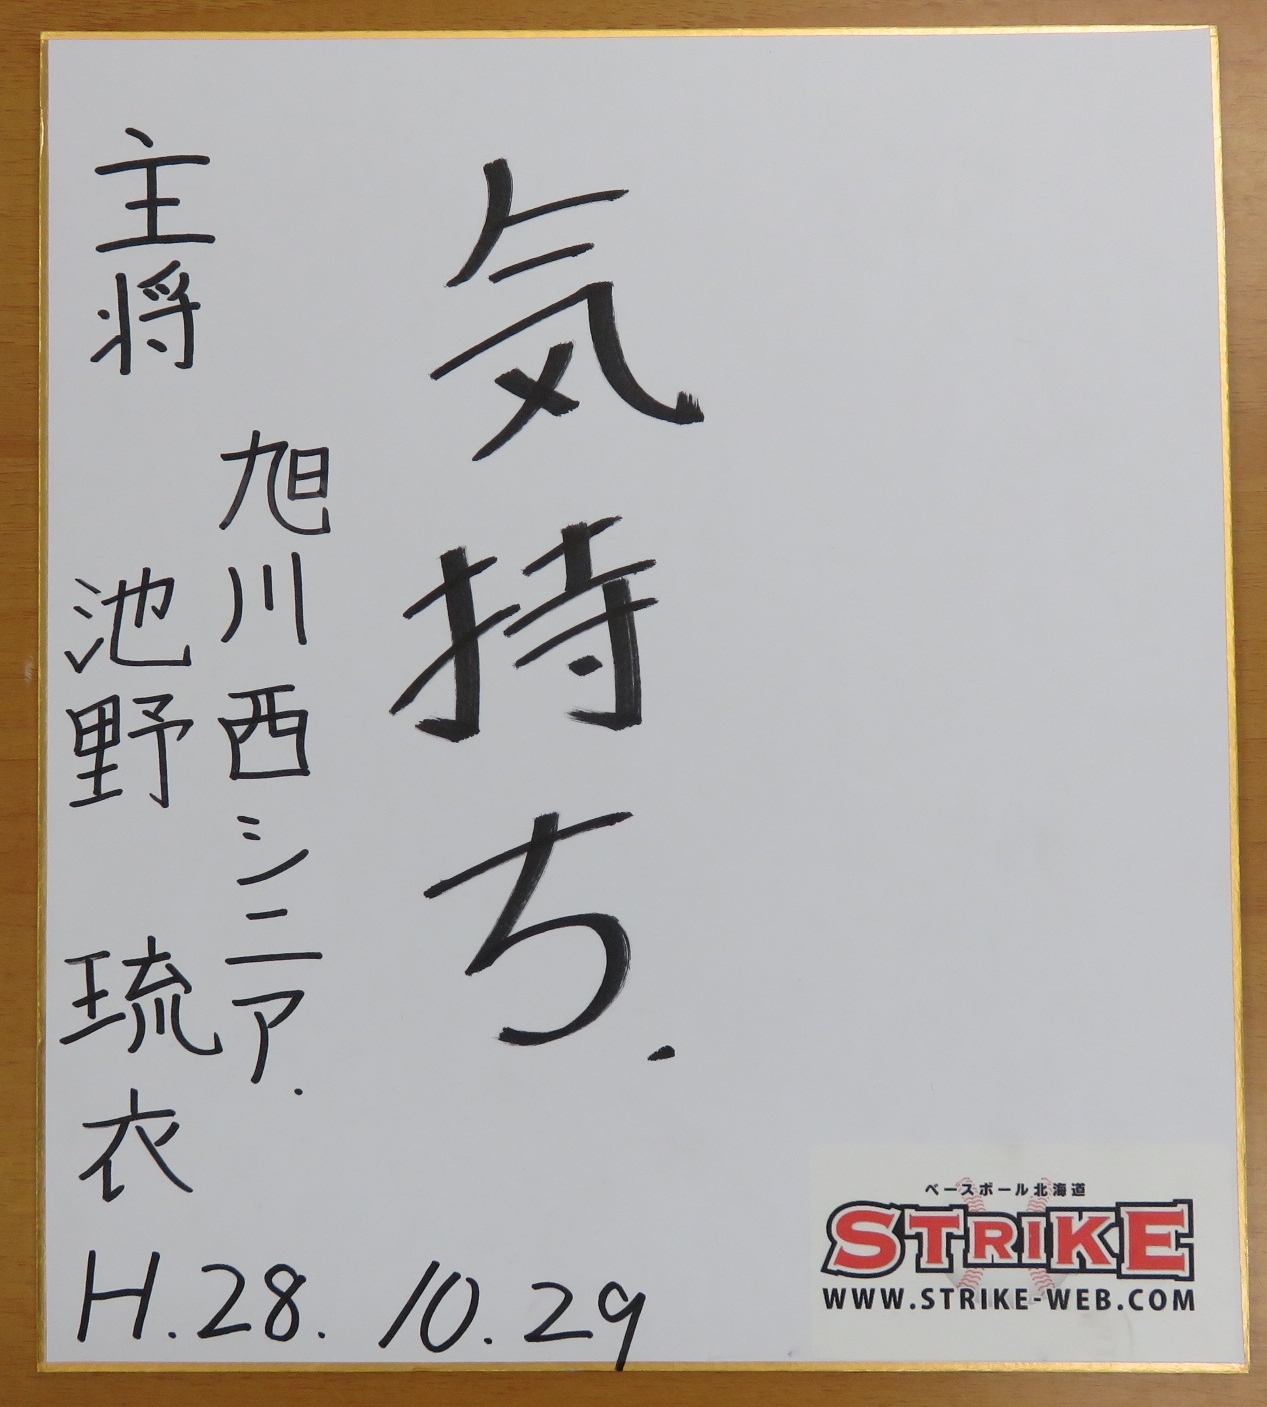 気持ち.
旭川西シニア.
主将 池野 琉衣
H.28. 10.29
ベースボール北海道
STRIKE
WWW.STRIKE-WEB.COM